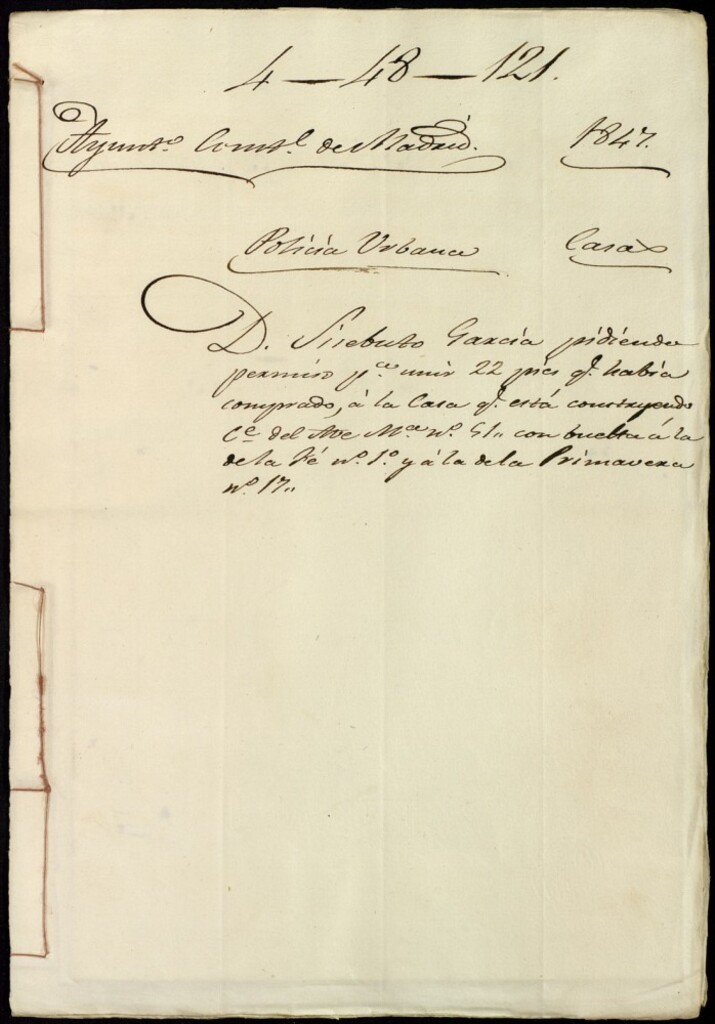 4 — 48 — 121.
Ayunto. Consl. de Madrid. 1847.
Policía Urbana Casas
D. Sisebuto García pidiendo
permiso pa. unir 22 pies q. había
comprado, á la Casa q. está construyendo
Ce. del Ave Ma. no. 51,, con buelta á la
de la Fé no. 1o. y á la de la Primavera
no. 17,,